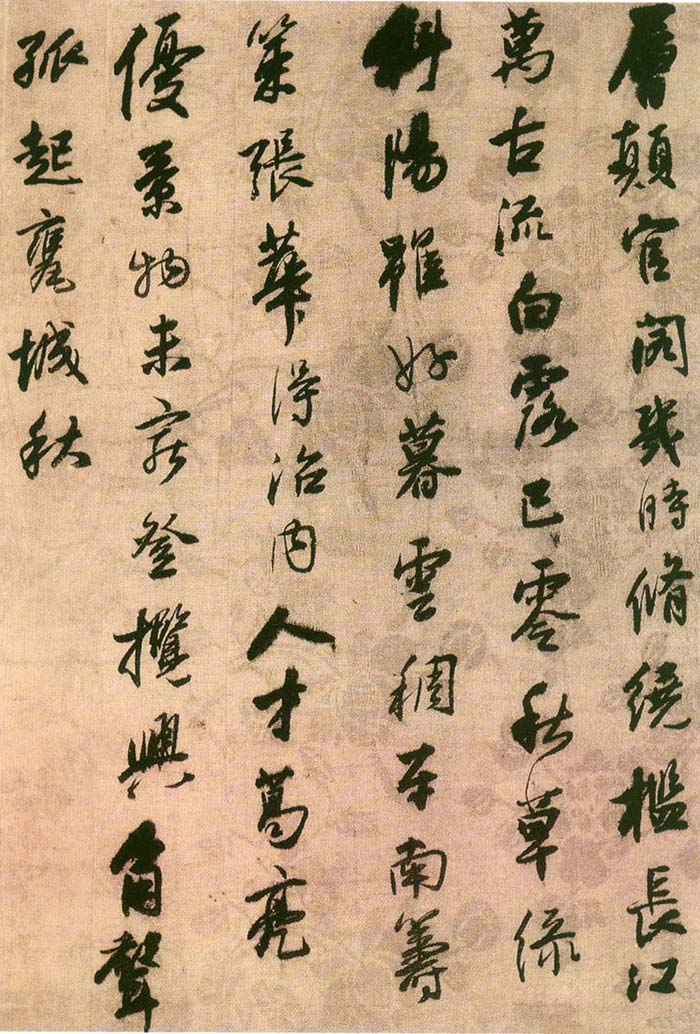 層顛官閣幾時脩繞檻長江
萬古流白露已零秋草綠
斜陽雖好暮雲稠平南籌
策張華得治內人才葛亮
優景物未窮登攬興角聲
孤起甕城秋